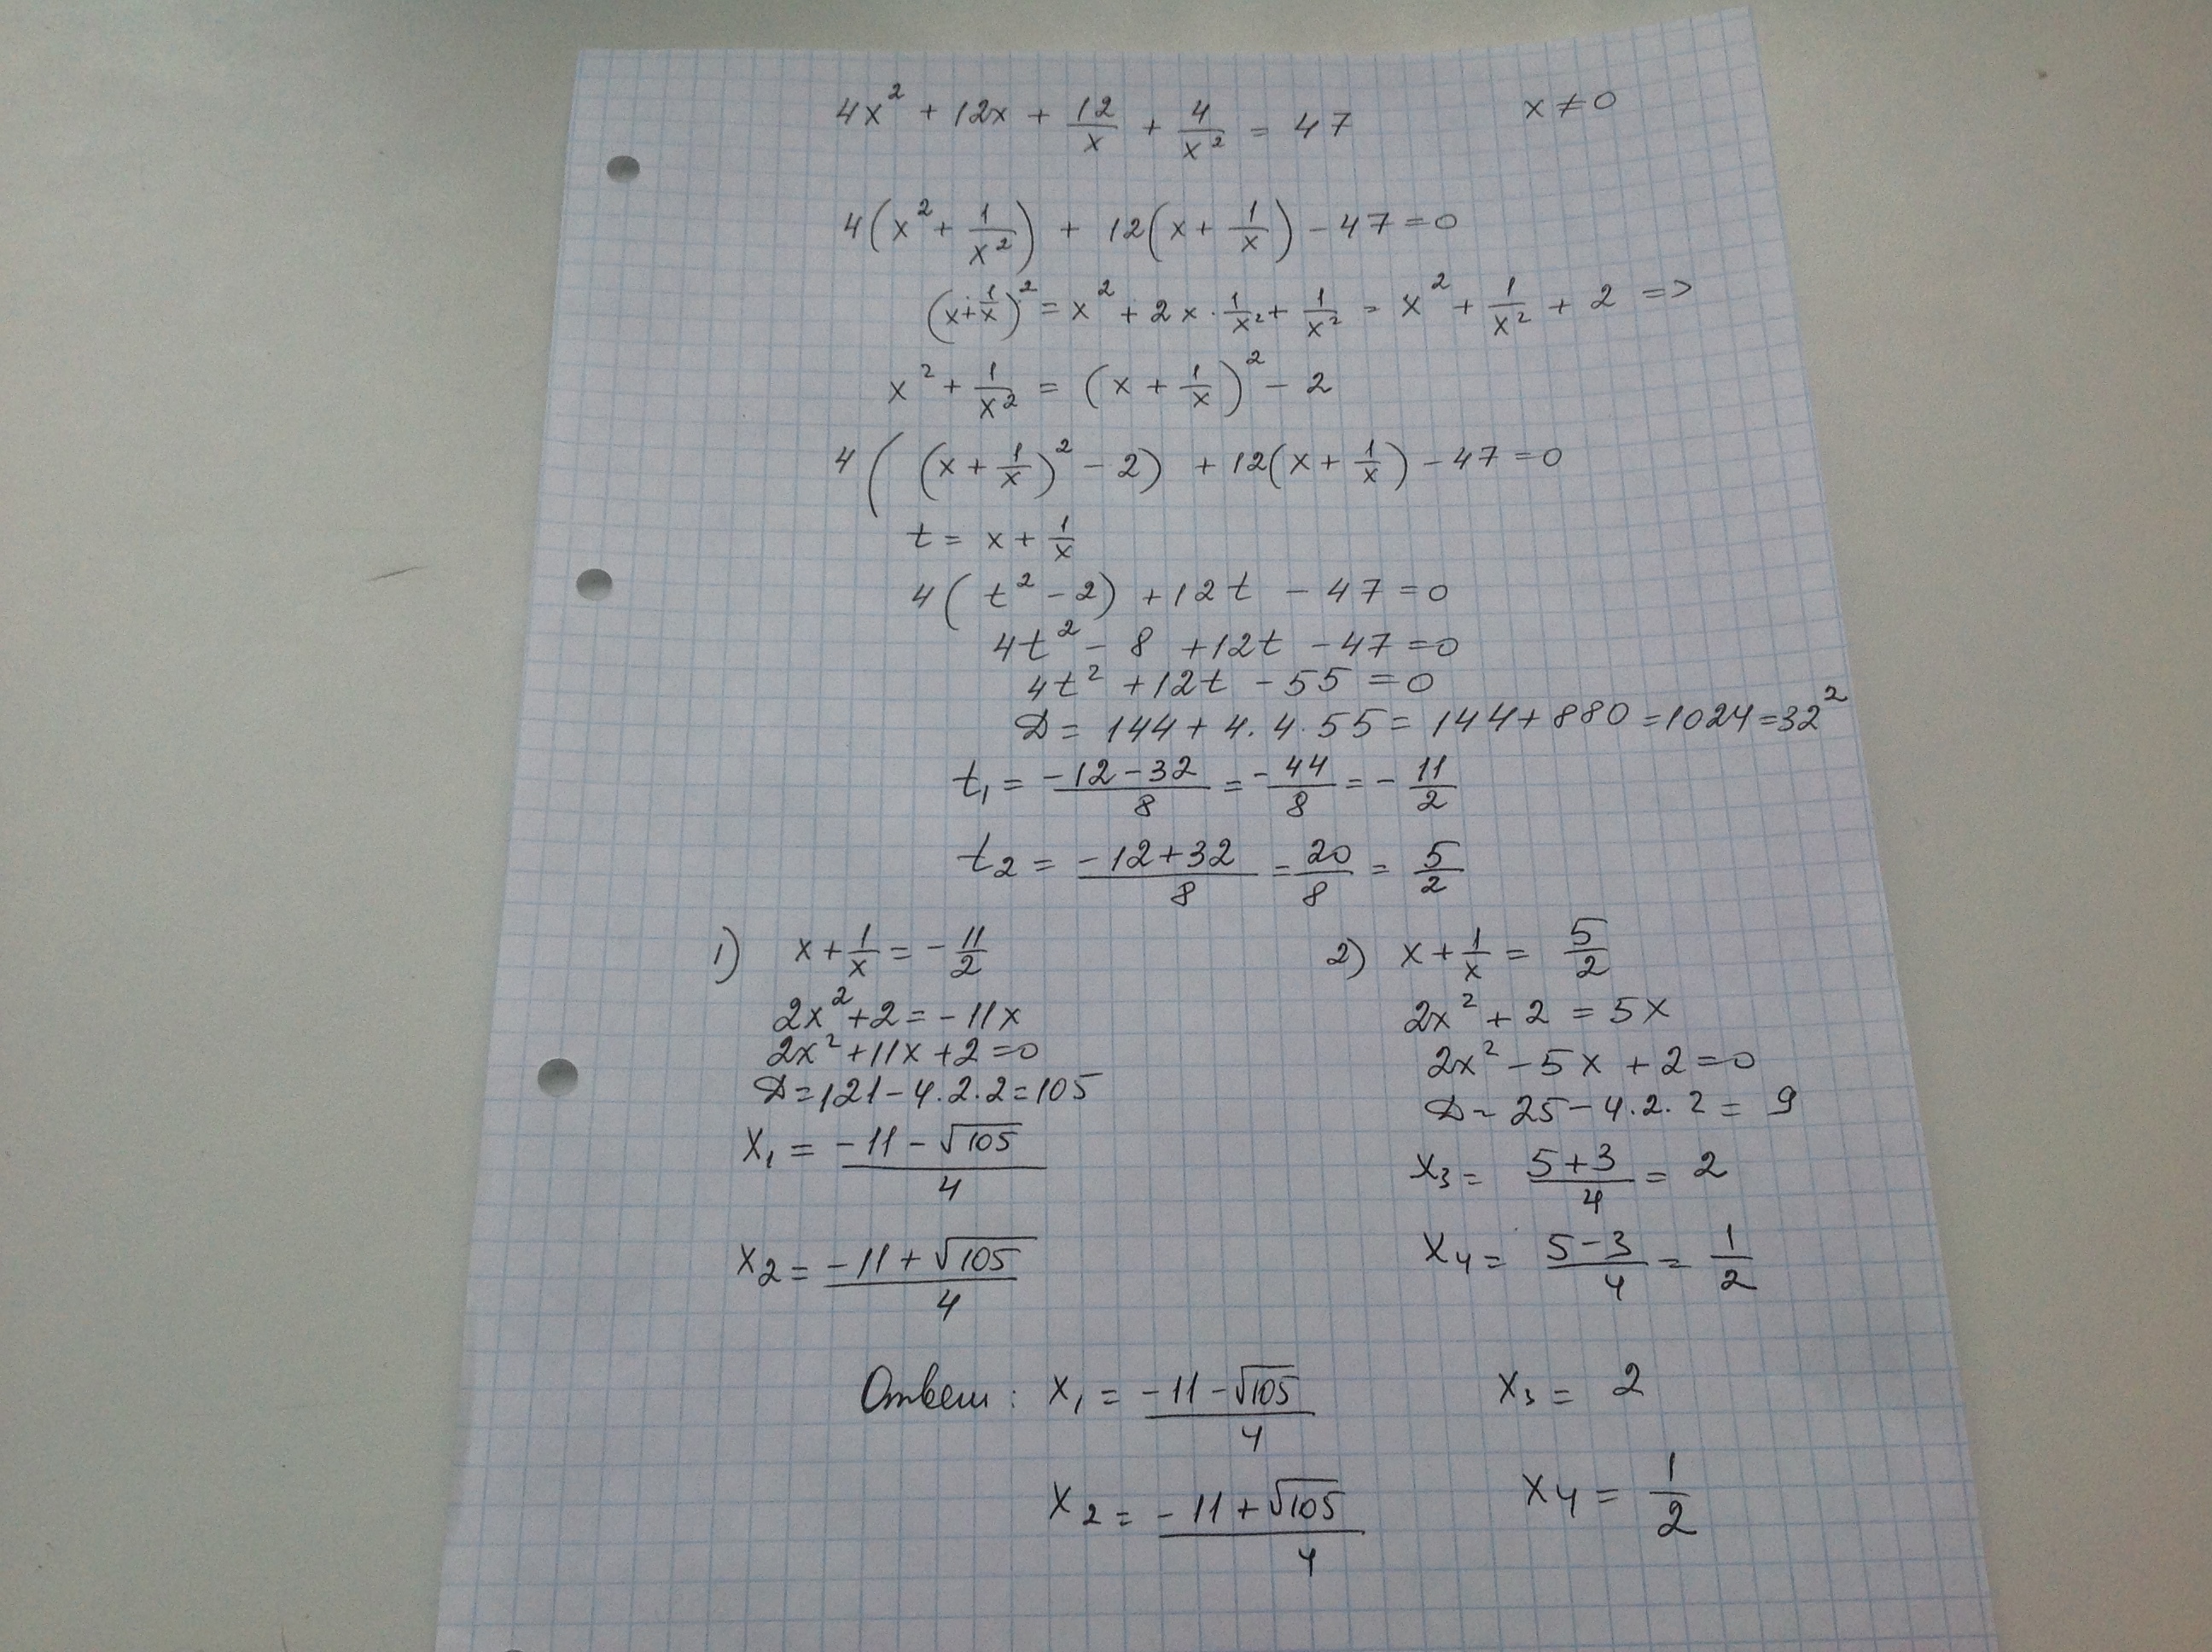 4x² + 12x + 12/x + 4/x² = 47    x ≠ 0
4(x² + 1/x²) + 12(x + 1/x) - 47 = 0
(x + 1/x)² = x² + 2x · 1/x² + 1/x² = x² + 1/x² + 2 =>
x² + 1/x² = (x + 1/x)² - 2
4((x + 1/x)² - 2) + 12(x + 1/x) - 47 = 0
t = x + 1/x
4(t² - 2) + 12t - 47 = 0
4t² - 8 + 12t - 47 = 0
4t² + 12t - 55 = 0
D = 144 + 4 · 4 · 55 = 144 + 880 = 1024 = 32²
t₁ = (-12 - 32)/8 = -44/8 = -11/2
t₂ = (-12 + 32)/8 = 20/8 = 5/2
1) x + 1/x = -11/2
2x² + 2 = -11x
2x² + 11x + 2 = 0
D = 121 - 4 · 2 · 2 = 105
x₁ = (-11 - √105)/4
x₂ = (-11 + √105)/4
2) x + 1/x = 5/2
2x² + 2 = 5x
2x² - 5x + 2 = 0
D = 25 - 4 · 2 · 2 = 9
x₃ = (5 + 3)/4 = 2
x₄ = (5 - 3)/4 = 1/2
Ответ: x₁ = (-11 - √105)/4    x₃ = 2
x₂ = (-11 + √105)/4    x₄ = 1/2